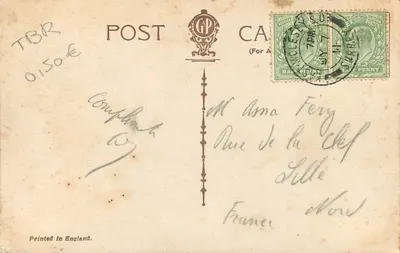 TBR
0,150€
POST CA
(For A
G P
7 PM
HALFPENNY
Compliments
Mr Anna Féry
Rue de la Clef
Lille
France Nord
Printed in England.